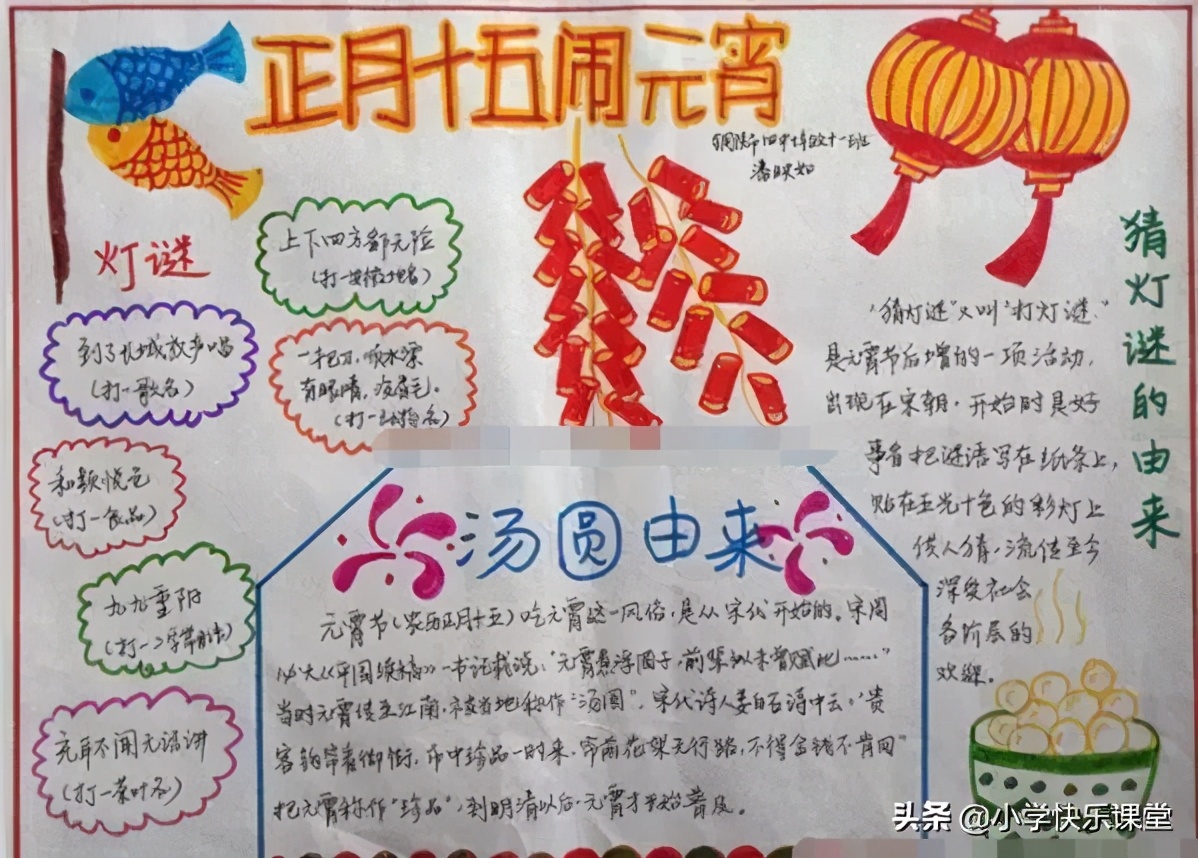 正月十五闹元宵
潘映如
灯谜
上下四方都无险
(打一安徽地名)
到了长城放声唱
(打一歌名)
一把刀,顺水漂
有眼睛,没眉毛。
(打一动物名)
和颜悦色
(打一食品)
九九重阳
(打一二字常用语)
充耳不闻无话讲
(打一茶叶名)
猜灯谜的由来
"猜灯谜"又叫"打灯谜"
是元宵节后增的一项活动,
出现在宋朝,开始时是好
事者把谜语写在纸条上,
贴在五光十色的彩灯上
供人猜,流传至今
深受社会
各阶层的
欢迎。
汤圆由来
元宵节(农历正月十五)吃元宵这一风俗,是从宋代开始的。宋周
必大《平园续稿》一书记载说:"元宵煮浮圆子,前辈似未曾赋此……"
当时元宵传至江南,被当地称作"汤圆"。宋代诗人姜白石诗中云:"贵
客钩帘看御街,市中珍品一时来,帘前花架无行路,不得金钱不肯回"
把元宵称作"珍品",到明清以后,元宵才开始普及。
头条 @小学快乐课堂